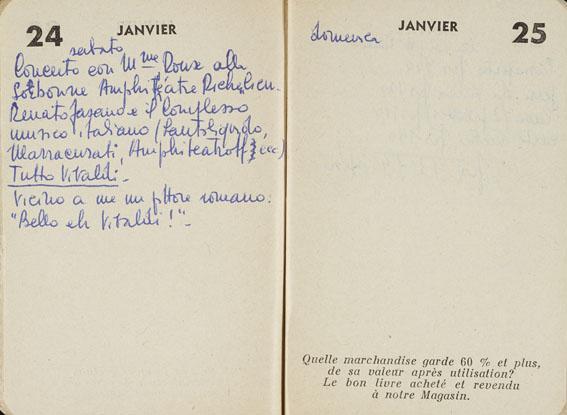 24 JANVIER
sabato
Concerto con Mme Roux alla
Sorbonne Amphitéatre Richelieu.
Renato Fasano e il complesso
musico italiano (
Amphiteatrof
ecc)
Tutto Vivaldi -
Vicino a me un pittore romano:
"Bello eh Vivaldi!" -
JANVIER 25
domenica
Quelle marchandise garde 60 % et plus,
de sa valeur après utilisation?
Le bon livre acheté et revendu
à notre Magasin.